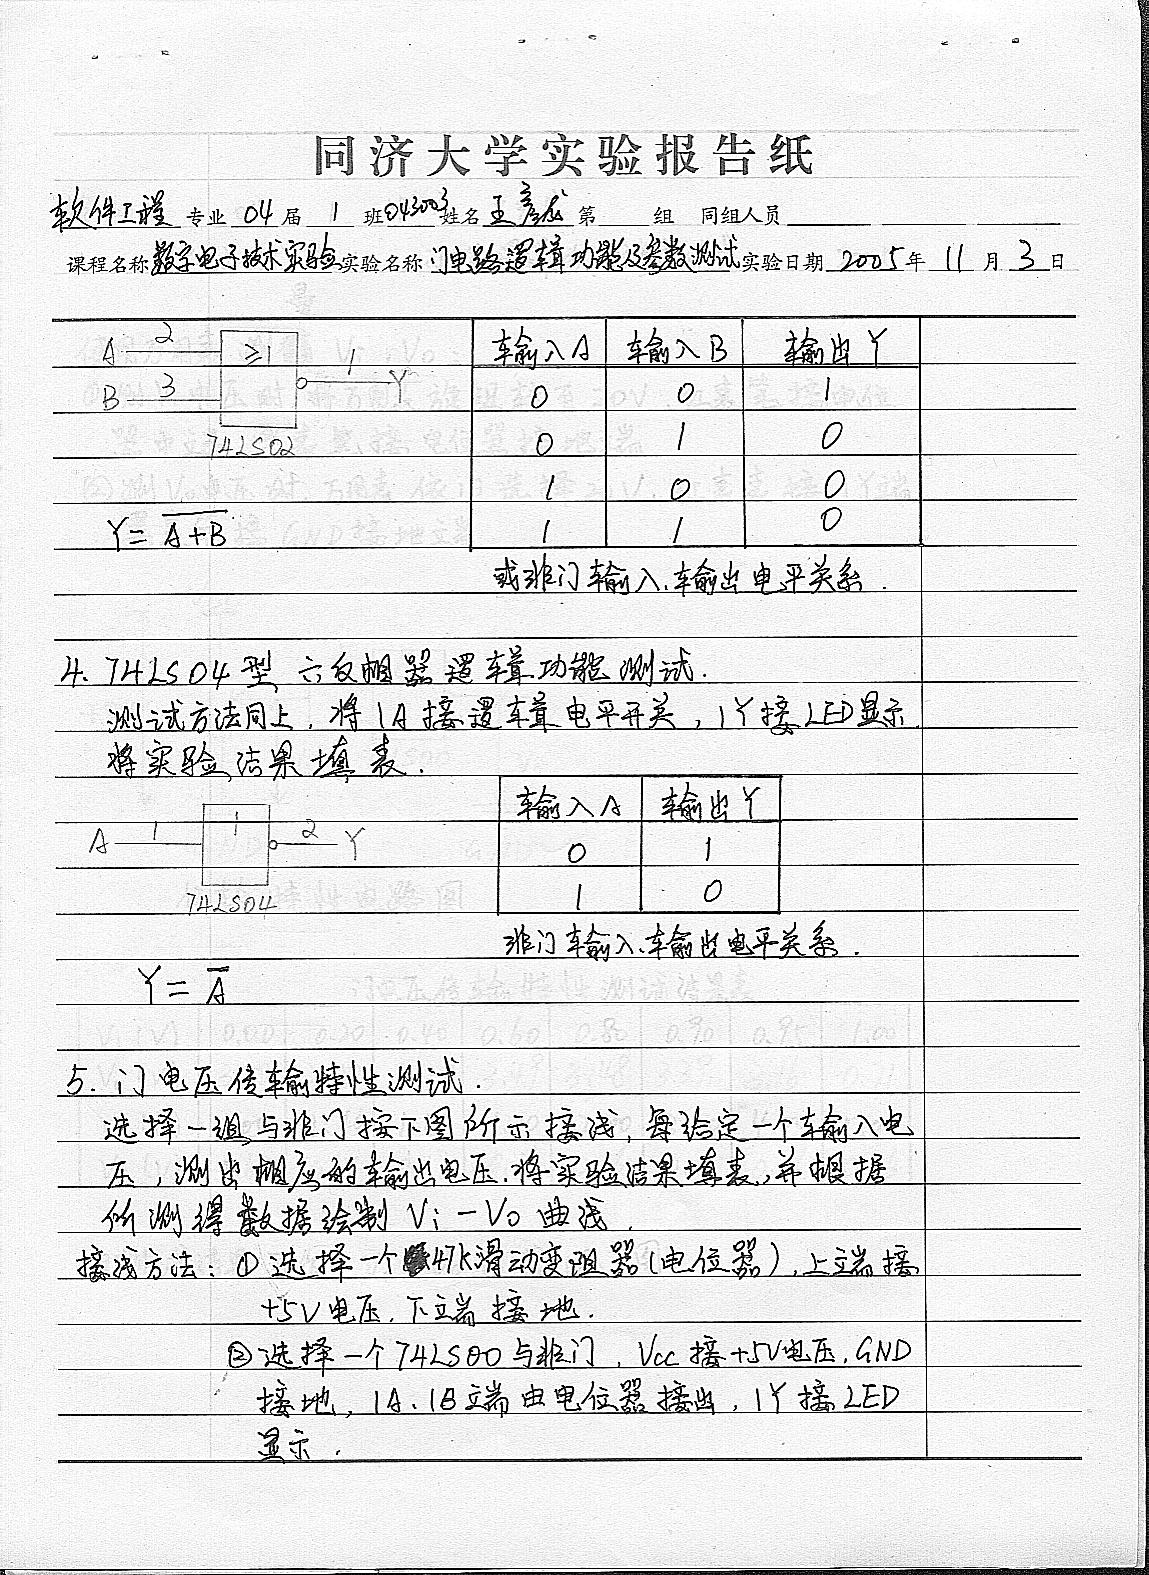 同济大学实验报告纸
软件工程 专业 04 届 1 班 043003 姓名 王彦龙 第 组 同组人员
课程名称 数字电子技术实验 实验名称 门电路逻辑功能及参数测试 实验日期 2005 年 11 月 3 日
A 2 ≥1 1 Y
B 3
74LS02
Y = \overline{A+B}
输入A 输入B 输出Y
0 0 1
0 1 0
1 0 0
1 1 0
或非门输入、输出电平关系.
4. 74LS04型六反相器逻辑功能测试.
测试方法同上, 将1A接逻辑电平开关, 1Y接LED显示.
将实验结果填表.
A 1 1 2 Y
74LS04
输入A 输出Y
0 1
1 0
非门输入、输出电平关系.
Y = \overline{A}
5. 门电压传输特性测试.
选择一组与非门按下图所示接线, 每给定一个输入电
压, 测出相应的输出电压. 将实验结果填表, 并根据
所测得数据绘制 Vi-Vo 曲线.
接线方法: ① 选择一个47K滑动变阻器(电位器), 上端接
+5V电压, 下端接地.
②选择一个74LS00与非门, Vcc接+5V电压, GND
接地, 1A、1B端由电位器接出, 1Y接LED
显示.